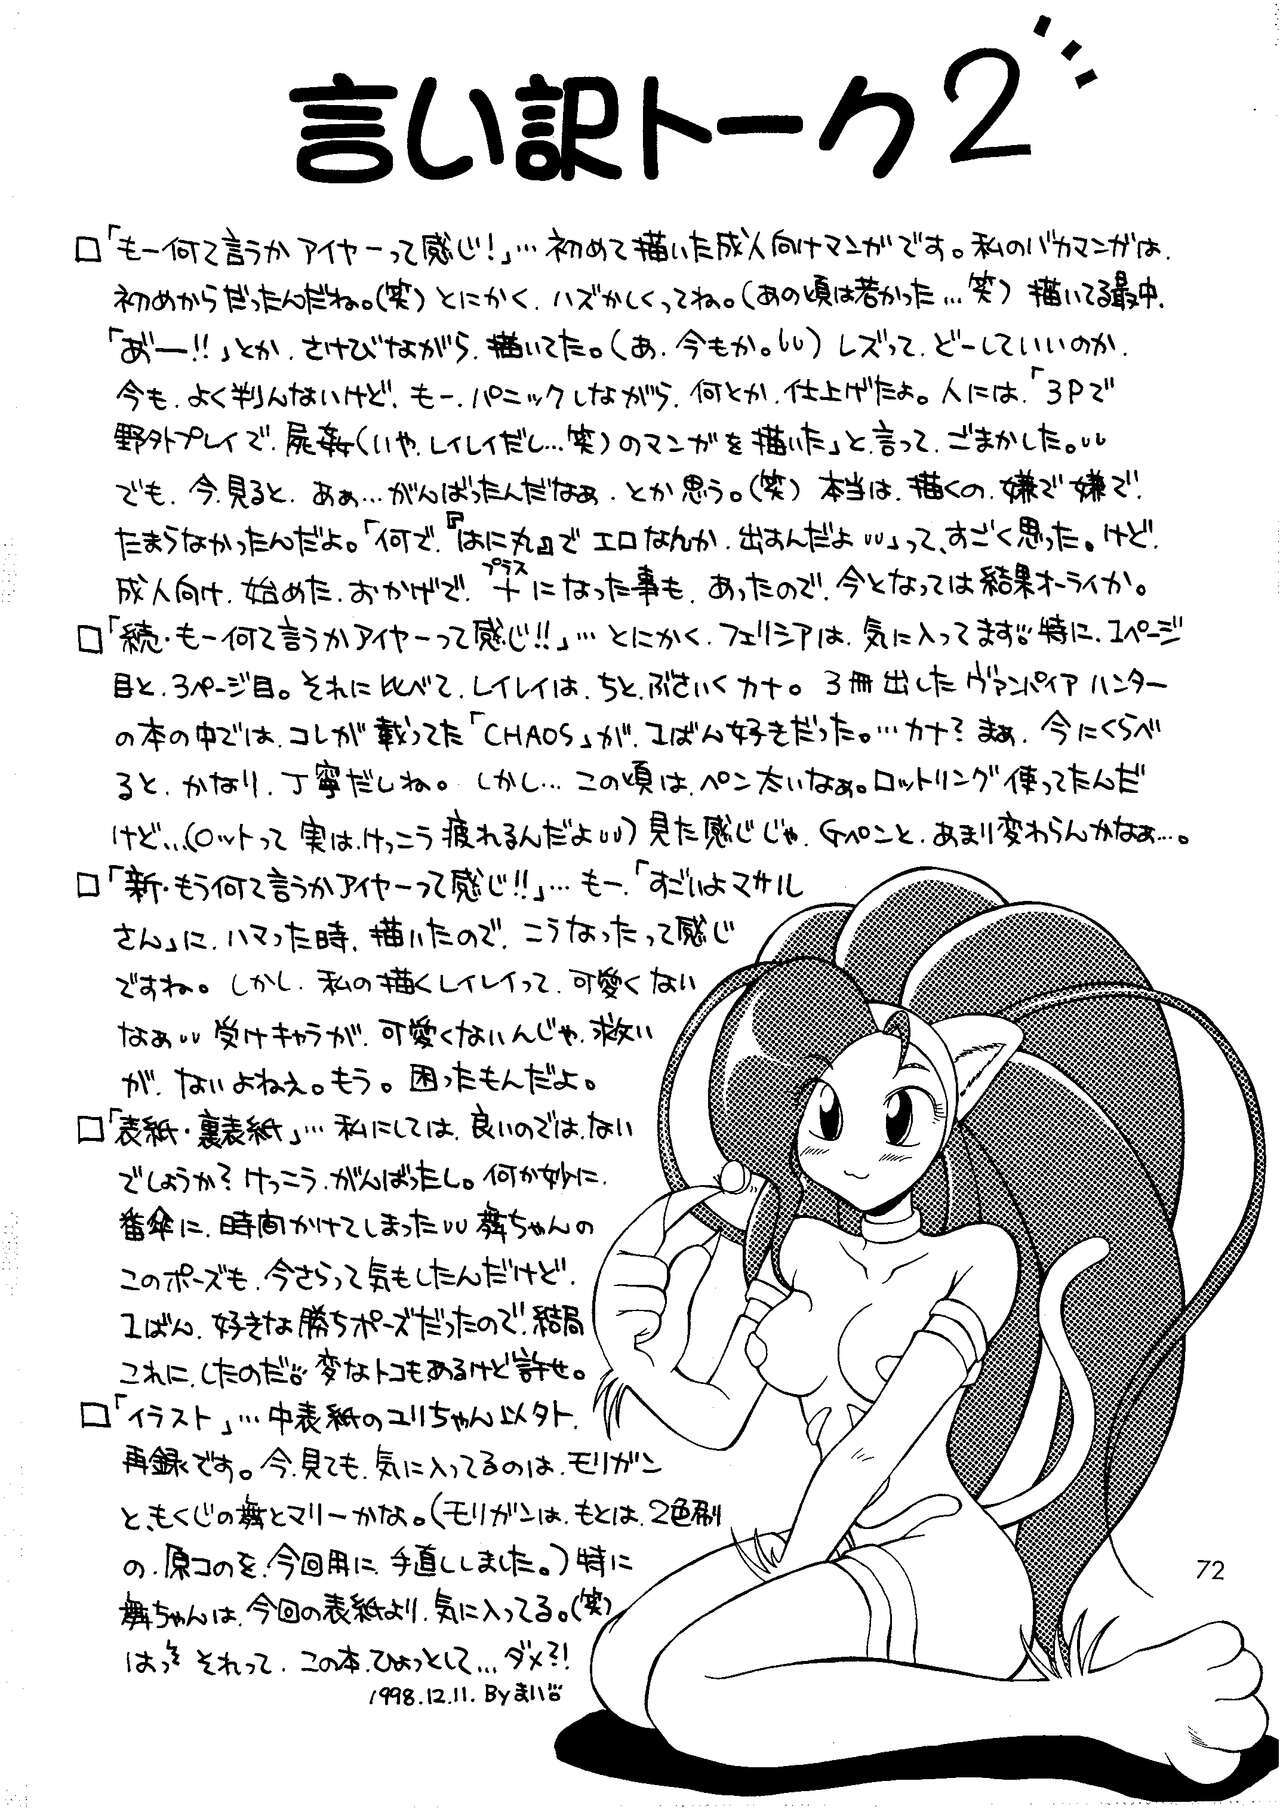 言い訳トーク2
□「もー何て言うかアイヤーって感じ！」… 初めて描いた成人向けマンガです。私のバカマンガは、
初めからだったんだね。(笑) とにかく、ハズかしくってね。(あの頃は若かった…笑) 描いてる最中、
「あ゛ー!!」とか、さけびながら、描いてた。(あ、今もか。) レズって、どーしていいのか、
今も、よく判んないけど、もー、パニックしながら、何とか、仕上げたよ。人には、「3Pで
野外プレイで、屍姦(いや、レイレイだし…笑)のマンガを描いた」と言って、ごまかした。
でも、今、見ると、あぁ…がんばったんだなぁ、とか思う。(笑) 本当は、描くの、嫌で嫌で、
たまらなかったんだよ。「何で、『はに丸』で エロなんか、出すんだよ」って、すごく思った。けど、
成人向け、始めた、おかげで、＋(プラス)になった事も、あったので、今となっては結果オーライか。
□「続・もー何て言うかアイヤーって感じ!!」… とにかく、フェリシアは、気に入ってます 特に、1ページ
目と、3ページ目。それに比べて、レイレイは、ちと、ぶさいくカナ。3冊出した ヴァンパイア ハンター
の本の中では、コレが載ってた「CHAOS」が、1ばん好きだった。…カナ？まぁ、今にくらべ
ると、かなり、丁寧だしね。しかし… この頃は、ペン太いなぁ。ロットリング 使ってたんだ
けど…(ロットって 実は、けっこう疲れるんだよ) 見た感じじゃ、Gペンと、あまり変わらんかなぁ…。
□「新・もう何て言うかアイヤーって感じ!!」… もー、「すごいよマサル
さん」に、ハマった時、描いたので、こうなったって感じ
ですね。しかし、私の描くレイレイって、可愛くない
なぁ 受けキャラが、可愛くないんじゃ、救い
が、ないよねえ。もう。困ったもんだよ。
□「表紙・裏表紙」… 私にしては、良いのでは、ない
でしょうか？けっこう、がんばったし。何か妙に、
番傘に、時間かけてしまった 舞ちゃんの
このポーズも、今さらって気もしたんだけど、
1ばん、好きな勝ちポーズだったので、結局
これに、したのだ 変なトコもあるけど許せ。
□「イラスト」… 中表紙のユリちゃん以外、
再録です。今、見ても、気に入ってるのは、モリガン
と、もくじの舞とマリーかな。(モリガンは、もとは、2色刷
の、原コのを、今回用に、手直ししました。) 特に
舞ちゃんは、今回の表紙より、気に入ってる。(笑)
はっ それって、この本、ひょっとして…ダメ?!
1998.12.11. By まい
72